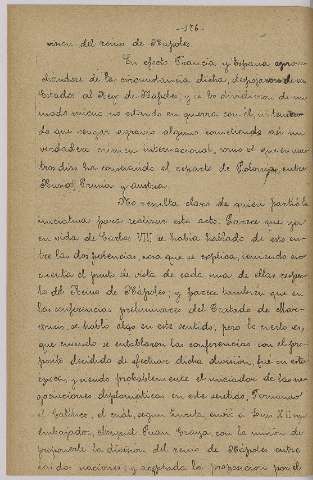 -126-
sion del reino de Nápoles.
En efecto Francia y España aprove-
chandose de la circunstancia dicha, despojaron de sus
Estados al Rey de Nápoles, y se los dividieron de un
modo inicuo no estando en guerra con él, ni tenien-
do que vengar agravio alguno cometiendo asi un
verdadero crimen internacional, como el que en nues-
tros dias ha constituido el reparto de Polonia, entre
Rusia, Prusia y Austria.
No resulta claro de quien partió la
iniciativa para realizar este acto. Parece que ya
en vida de Carlos VIII se habia hablado de esto en-
tre las dos potencias, cosa que se explica, teniendo en
cuenta el punto de vista de cada una de ellas respec-
to del Reino de Nápoles, y parece tambien que en
las conferencias preliminares del Tratado de Mar-
coussis, se habló algo en este sentido, pero lo cierto es,
que cuando se entablaron las conferencias con el pro-
posito decidido de efectuar dicha división, fué en esta
época, y siendo probablemente el iniciador de las ne-
gociaciones diplomáticas en este sentido, Fernando
el Católico, el cual, segun Zurita envió a Luis XII un
embajador, Mosen Juan Gralla, con la misión de
proponerle la división del reino de Nápoles entre
las dos naciones; y aceptada la proposición por el